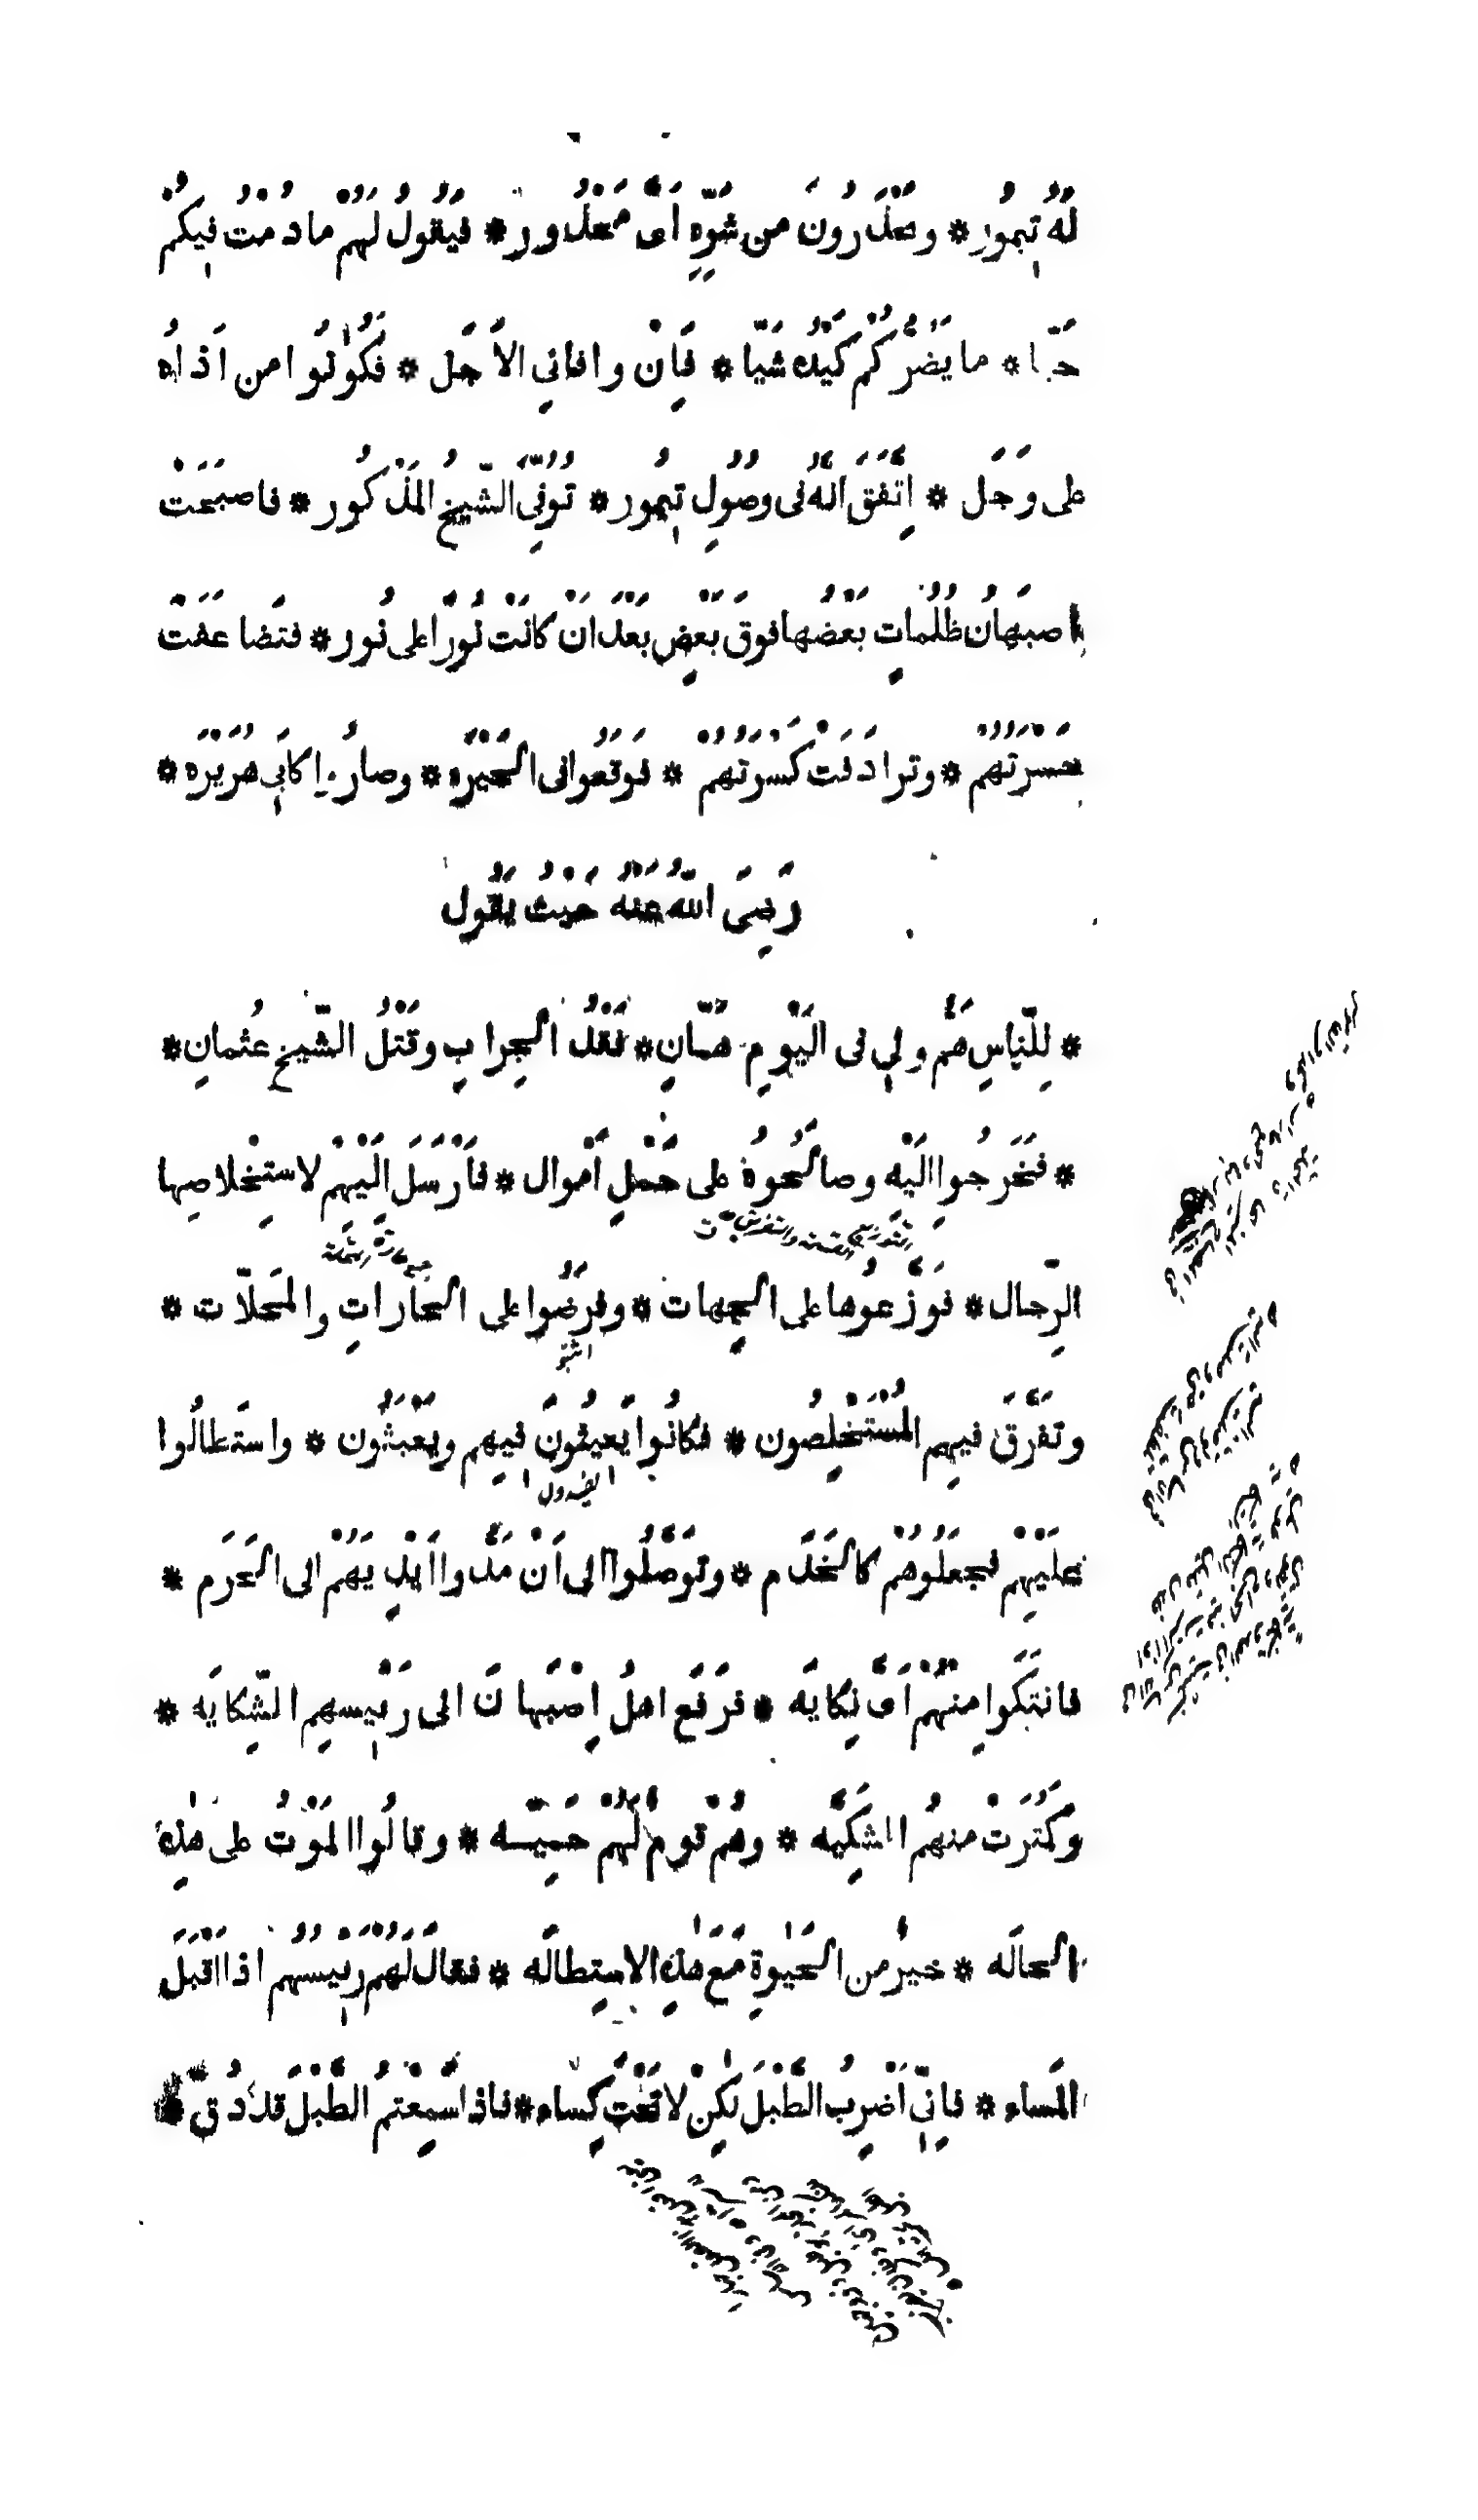 لَهُ تِيمُور * ويَحْذَرُونَ من شَرِّهِ اَىَّ مَحْذُور * فيَقُولُ لَهُمْ ما دُمْتُ فِيكُمْ
حَيّا * ما يَضُرُّكُم كَيْدُه شَيّا * فَاِنْ وافانِي الاَجَل * فكُونُوا من اَذاهُ
على وَجَل * اِتَّفَقَ اَنَّهُ فى وصُولِ تِيمُور * تُوُفِّيَ الشَّيخُ المَذْكُور * فاصبَحَت
اصبَهانُ ظُلُماتٍ بَعْضُها فوقَ بَعْضٍ بَعْدَ اَنْ كانَتْ نُورًا على نُور * فتَضاعَفَتْ
حَسْرَتُهُم * وترادَفَتْ كَسْرَتُهُمْ * فوَقَعُوا فى الحَيْرَه * وصارُوا كاَبِي هُرَيْرَه *
رَضِىَ اللّٰهُ عَنْهُ حَيْثُ يَقُول
* لِلنّاسِ هَمٌّ ولِي فى اليَوْمِ هَمّانِ * فَقْدُ الجِرابِ وقَتْلُ الشَّيخِ عُثمانِ *
* فخَرَجُوا اِلَيْهِ وصالَحُوهُ على حَمْلِ اَموال * فاَرْسَلَ اِلَيْهِمْ لاستِخْلاصِها
الرِّجال * فوَزَّعُوها على الجِهات * وفَرَضُوا على الحارَاتِ والمَحلّات *
وتَفَرَّقَ فيهِم المُسْتَخْلِصُون * فكانُوا يَعِيثُونَ فِيهِم ويَعْبَثُون * واستَطالُوا
عليْهِم فجعَلُوهُمْ كالخَدَم * وتوَصَّلُوا الى اَنْ مَدُّوا اَيْدِيَهُمْ الى الحَرَم *
فانتَكَوا مِنهُمْ اَىَّ نِكايَه * فرَفَعَ اهلُ اِصْبَهانَ الى رَئِيسِهِم الشِّكايَه *
وكَثُرَتْ منهُم الشَكِيَّه * وهُمْ قومٌ لَهُمْ حَمِيَّه * وقالُوا المَوْتُ على هٰذِه
الحالَه * خيرٌ من الحَيٰوةِ مَعَ هٰذِه الاستِطالَه * فقالَ لَهُمْ رَئِيسُهُم اذا اَقْبَلَ
المَساء * فاِنِّي اَضْرِبُ الطَّبْلَ لٰكِنْ لا تَحْتَ كِساء * فاذا سَمِعْتُمُ الطَّبْلَ قد دُقّ *